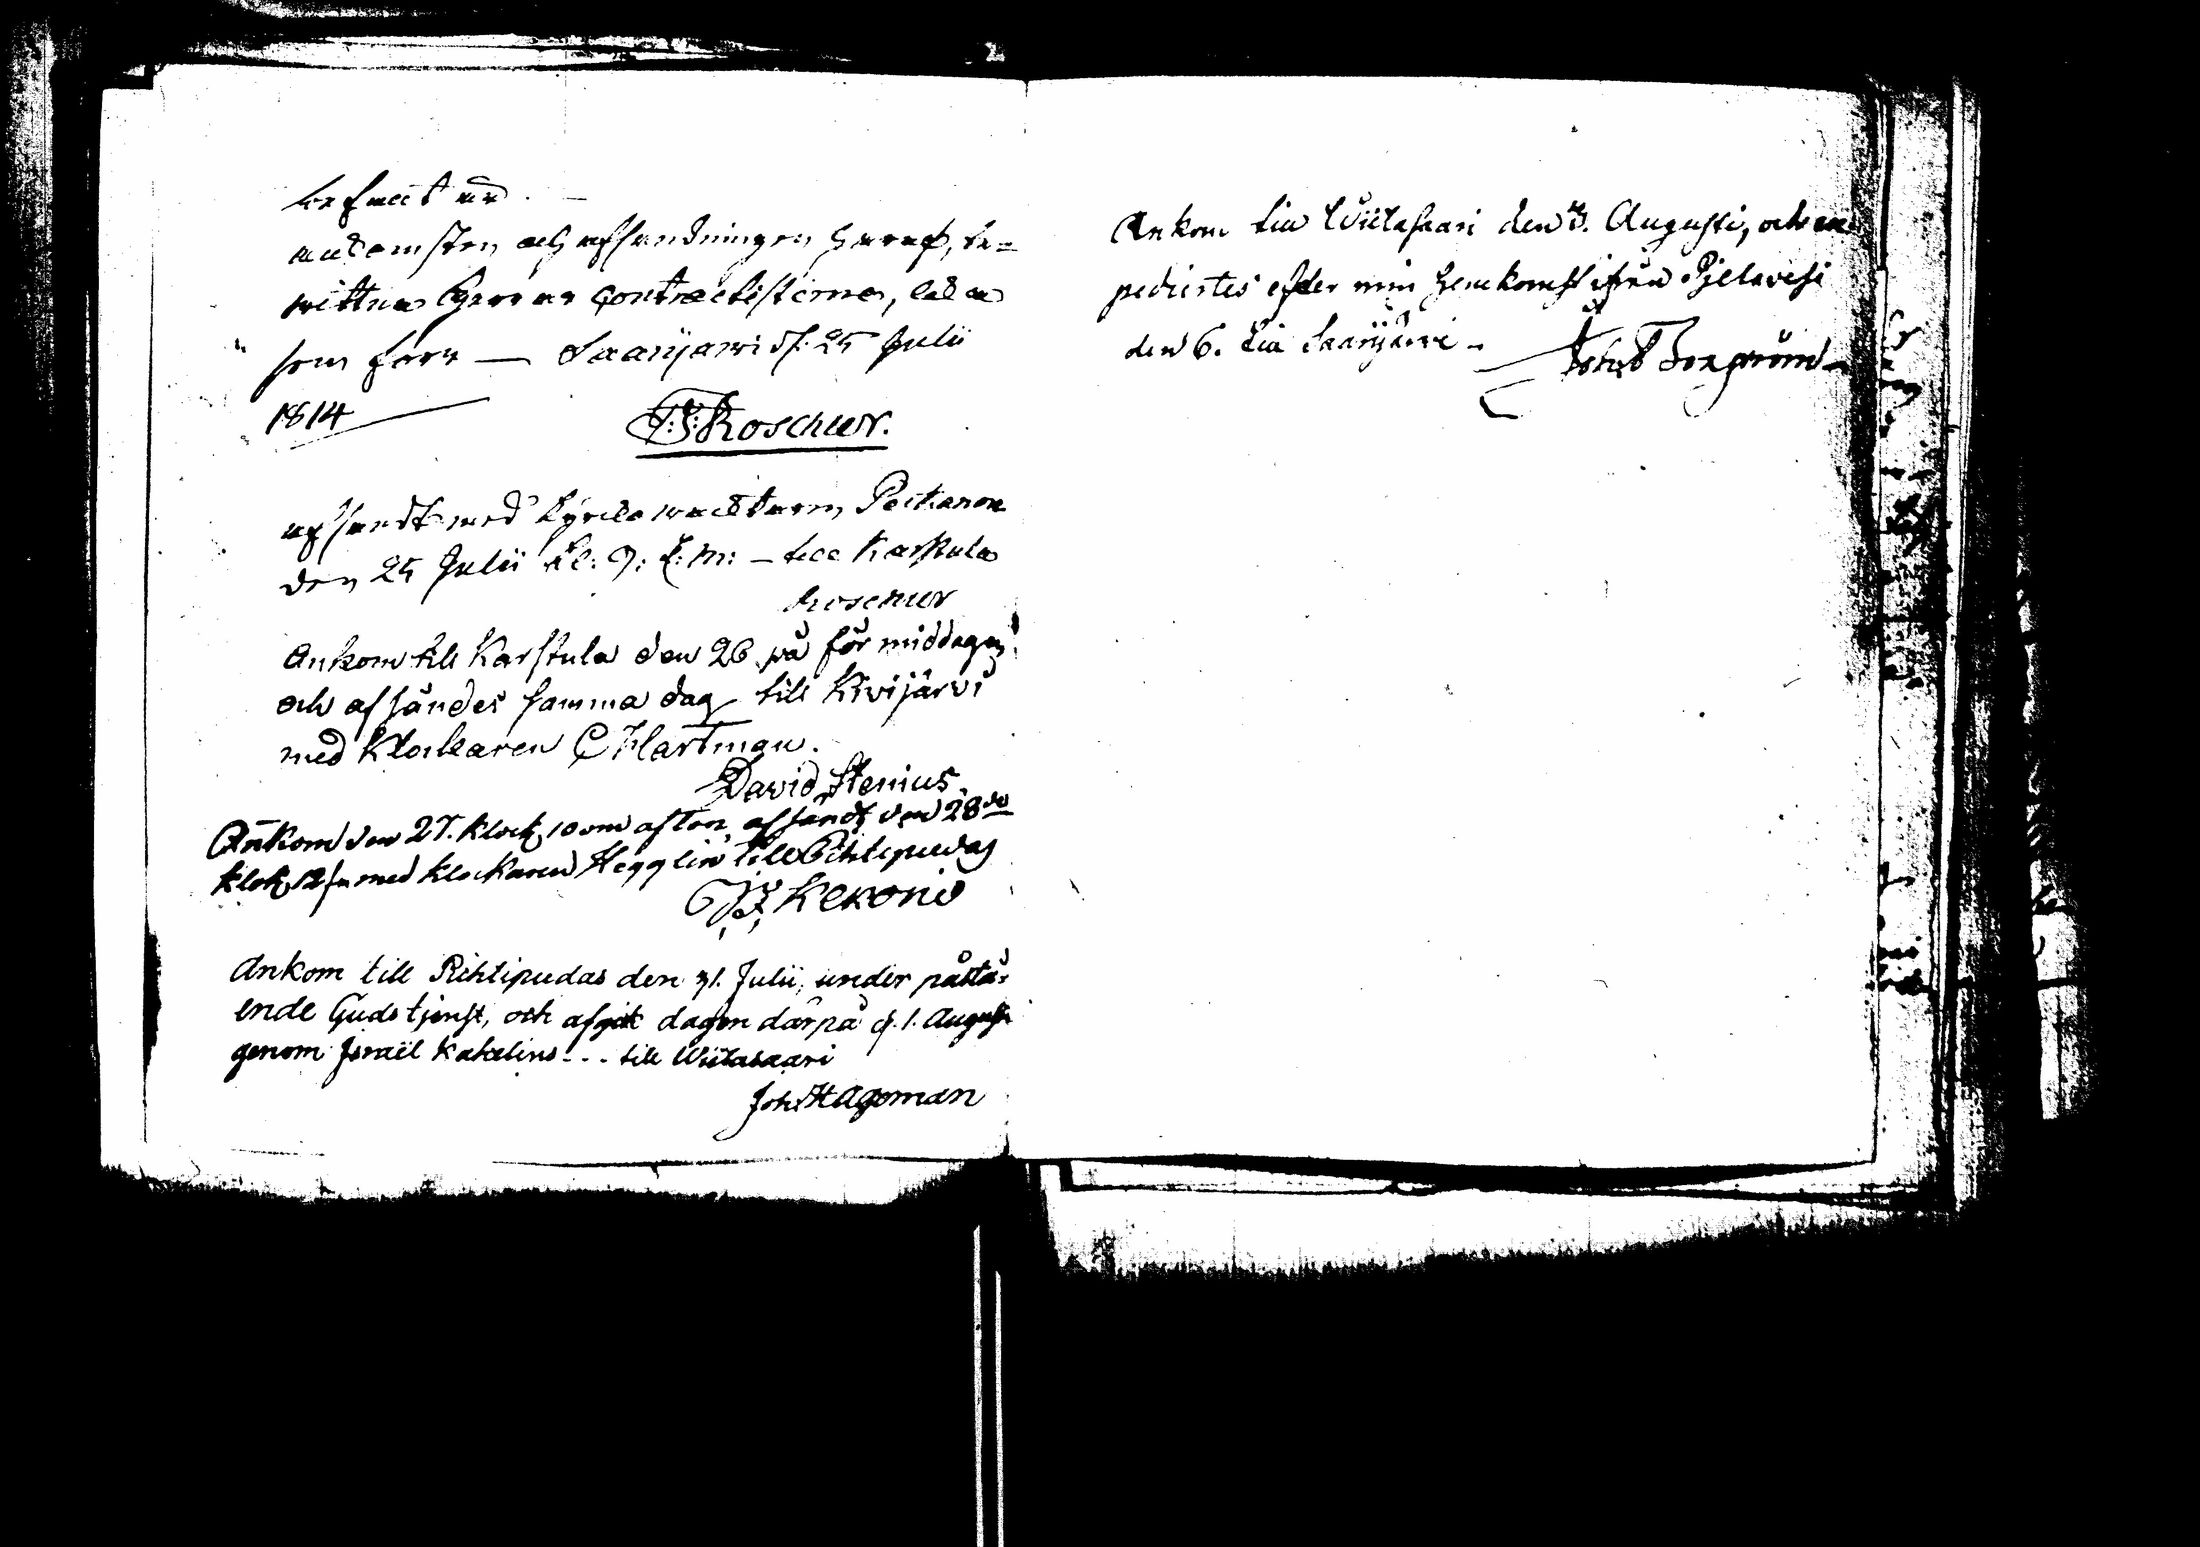 ankomsten och afsändningen häraf, be-
Herrar Contractisterne,
som förr — Saarijärvi d. 25 Julii
1814
Roschier.
afsändt med Kyrko wacktaren Pekanen
den 25 Julii kl: 9: f: m: – till Karstula
Roschier
Ankom till Karstula den 26 på för middagen
och afsändes samma dag till Kivijärvi
med Klockaren C Hartman.
David Stenius
Ankom den 27. klock. 10 om afton, afsändt den 28de
klok. 12 med klockaren Hegglin till Pihtipudas
Kekoni
Ankom till Pihtipudas den 31. Julii, under påstå-
ende Gudstjenst, och afgik dagen därpå d. 1. Augusti
genom Israël Kahelin - - - till Wiitasaari
Joh. Hagman
Ankom till Wiitasaari den 3. Augusti, och ex-
pediertes efter min hemkomst ifrån Pjelavesi
den 6. till Saarijärvi –